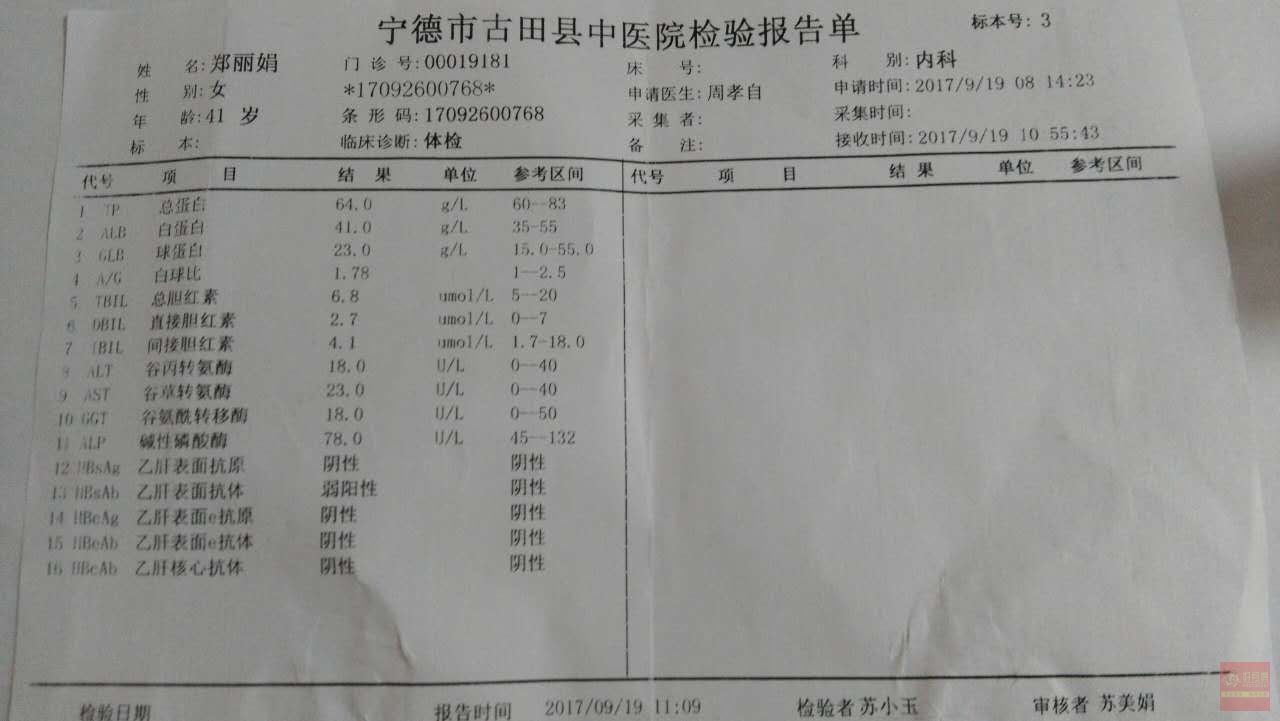 宁德市古田县中医院检验报告单 标本号: 3
姓 名: 郑丽娟 门诊号: 00019181 床 号: 科 别: 内科
性 别: 女 *17092600768* 申请医生: 周孝自 申请时间: 2017/9/19 08 14:23
年 龄: 41 岁 条形码: 17092600768 采集者: 采集时间:
标 本: 临床诊断: 体检 备 注: 接收时间: 2017/9/19 10 55:43
代号 项 目 结 果 单位 参考区间 代号 项 目 结 果 单位 参考区间
1 TP 总蛋白 64.0 g/L 60--83
2 ALB 白蛋白 41.0 g/L 35-55
3 GLB 球蛋白 23.0 g/L 15.0-55.0
4 A/G 白球比 1.78 1--2.5
5 TBIL 总胆红素 6.8 umol/L 5--20
6 DBIL 直接胆红素 2.7 umol/L 0--7
7 IBIL 间接胆红素 4.1 umol/L 1.7-18.0
8 ALT 谷丙转氨酶 18.0 U/L 0--40
9 AST 谷草转氨酶 23.0 U/L 0--40
10 GGT 谷氨酰转移酶 18.0 U/L 0--50
11 ALP 碱性磷酸酶 78.0 U/L 45--132
12 HBsAg 乙肝表面抗原 阴性 阴性
13 HBsAb 乙肝表面抗体 弱阳性 阴性
14 HBeAg 乙肝表面e抗原 阴性 阴性
15 HBeAb 乙肝表面e抗体 阴性 阴性
16 HBcAb 乙肝核心抗体 阴性 阴性
检验日期 报告时间 2017/09/19 11:09 检验者 苏小玉 审核者 苏美娟